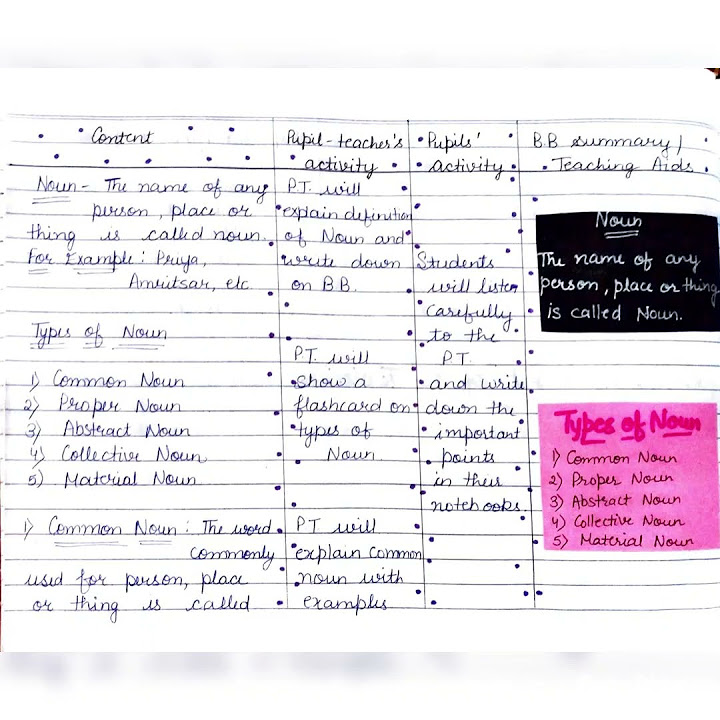 Content
Noun - The name of any
person, place or
thing is called noun.
For Example: Priya,
Amritsar, etc.
Types of Noun
1) Common Noun
2) Proper Noun
3) Abstract Noun
4) Collective Noun
5) Material Noun
1) Common Noun: The word
commonly
used for person, place
or thing is called
Pupil-teacher's
activity
P.T. will
explain definition
of Noun and
write down
on B.B.
P.T. will
show a
flashcard on
types of
Noun.
PT will
explain common
noun with
examples
Pupils'
activity
Students
will listen
carefully
to the
P.T.
and write
down the
important
points
in their
notebooks.
B.B summary/
Teaching Aids
Noun
The name of any
person, place or thing
is called Noun.
Types of Noun
1) Common Noun
2) Proper Noun
3) Abstract Noun
4) Collective Noun
5) Material Noun